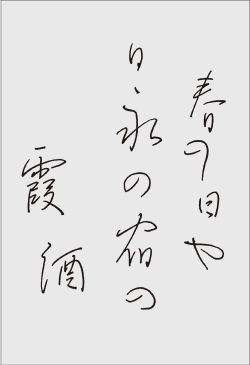 春の日や
日永の宿の
霞酒